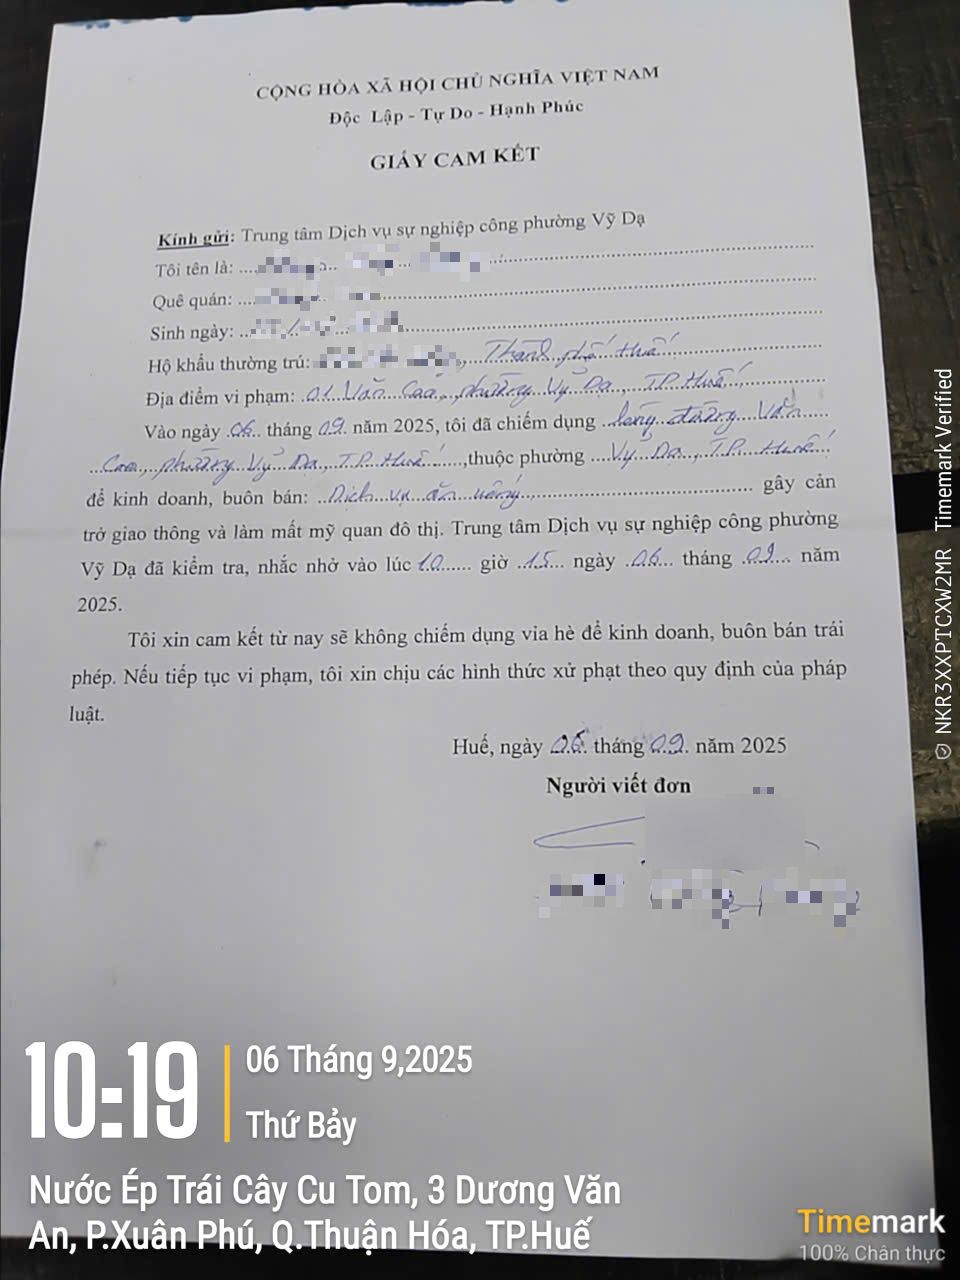 CỘNG HÒA XÃ HỘI CHỦ NGHĨA VIỆT NAM
Độc Lập - Tự Do - Hạnh Phúc
GIẤY CAM KẾT
Kính gửi: Trung tâm Dịch vụ sự nghiệp công phường Vỹ Dạ
Tôi tên là:
Quê quán:
Sinh ngày:
Hộ khẩu thường trú: , Thành phố Huế
Địa điểm vi phạm: 01 Văn Cao, phường Vỹ Dạ, TP. Huế
Vào ngày 06 tháng 09 năm 2025, tôi đã chiếm dụng lòng đường Văn
Cao, phường Vỹ Dạ, TP. Huế, thuộc phường Vỹ Dạ, TP. Huế
để kinh doanh, buôn bán: Dịch vụ ăn uống gây cản
trở giao thông và làm mất mỹ quan đô thị. Trung tâm Dịch vụ sự nghiệp công phường
Vỹ Dạ đã kiểm tra, nhắc nhở vào lúc 10 giờ 15 ngày 06 tháng 09 năm
2025.
Tôi xin cam kết từ nay sẽ không chiếm dụng vỉa hè để kinh doanh, buôn bán trái
phép. Nếu tiếp tục vi phạm, tôi xin chịu các hình thức xử phạt theo quy định của pháp
luật.
Huế, ngày 06 tháng 09 năm 2025
Người viết đơn
NKR3XXPTCXW2MR Timemark Verified
10:19
06 Tháng 9,2025
Thứ Bảy
Nước Ép Trái Cây Cu Tom, 3 Dương Văn
An, P.Xuân Phú, Q.Thuận Hóa, TP.Huế
Timemark
100% Chân thực